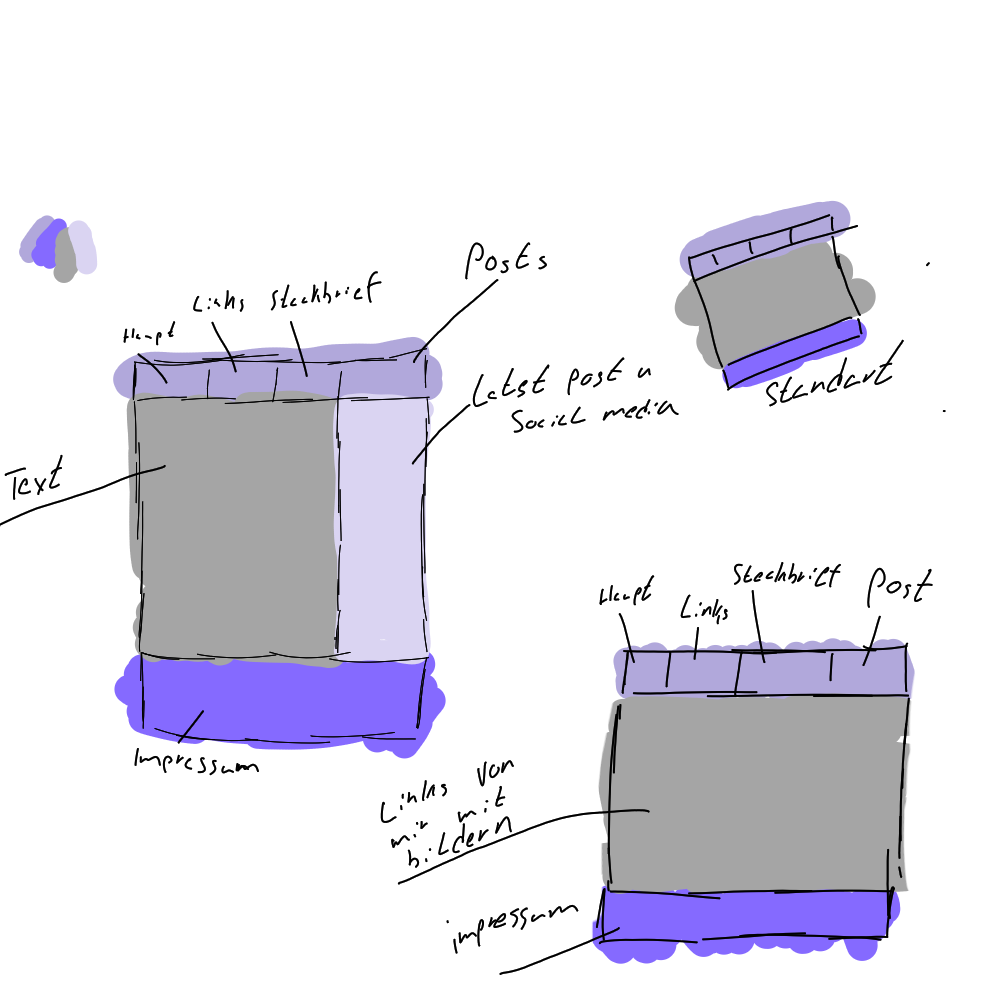 Posts
Links Steckbrief
Haupt
Latest post u
Social media
Text
Impressum
Standart
Haupt
Links
Steckbrief
Post
Links von
mir mit
bildern
impressum